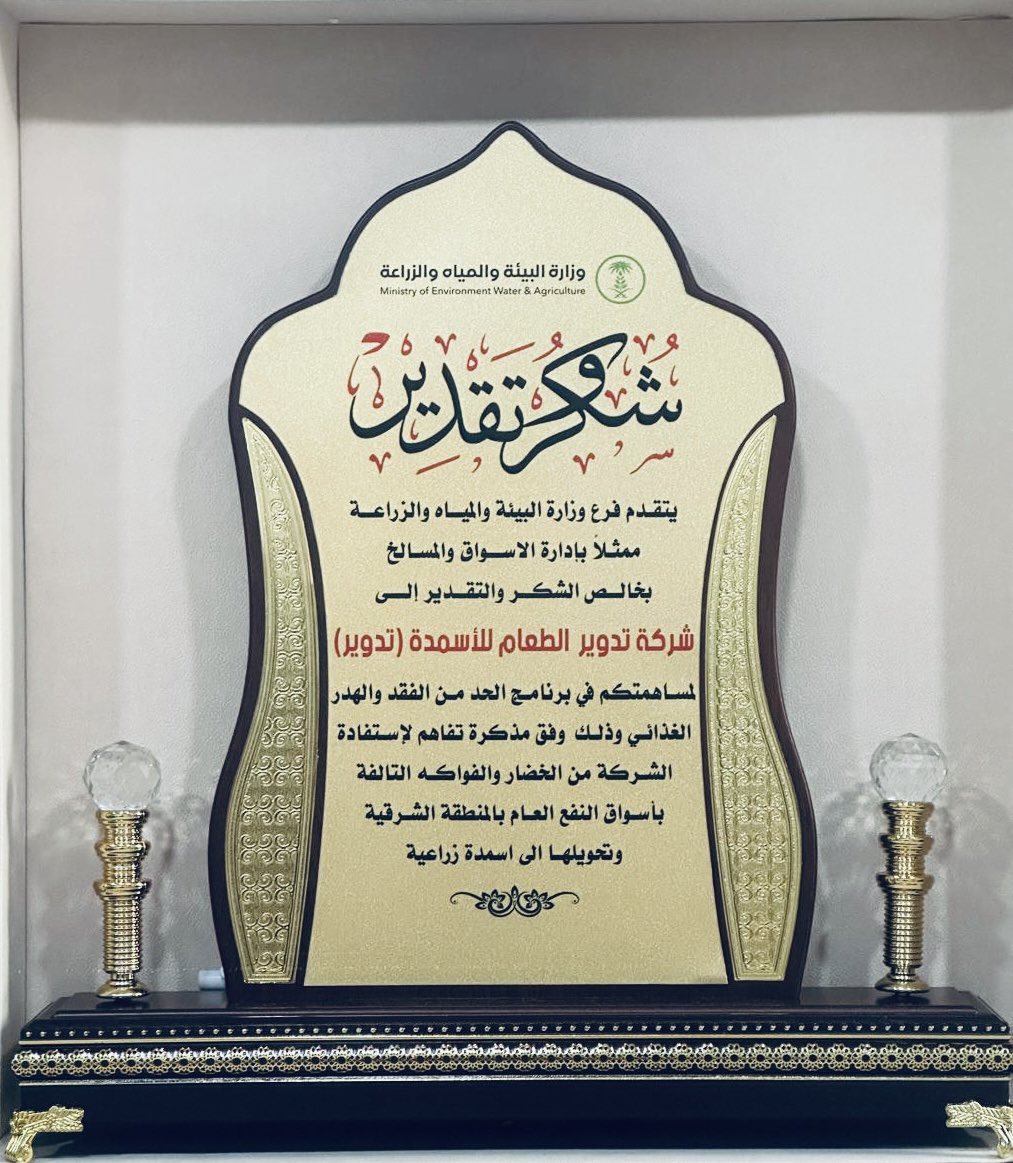 وزارة البيئة والمياه والزراعة
Ministry of Environment Water & Agriculture
شكر وتقدير
يتقدم فرع وزارة البيئة والمياه والزراعة
ممثلاً بإدارة الاسواق والمسالخ
بخالص الشكر والتقدير إلى
شركة تدوير الطعام للأسمدة (تدوير)
لمساهمتكم في برنامج الحد من الفقد والهدر
الغذائي وذلك وفق مذكرة تفاهم لإستفادة
الشركة من الخضار والفواكه التالفة
بأسواق النفع العام بالمنطقة الشرقية
وتحويلها الى اسمدة زراعية